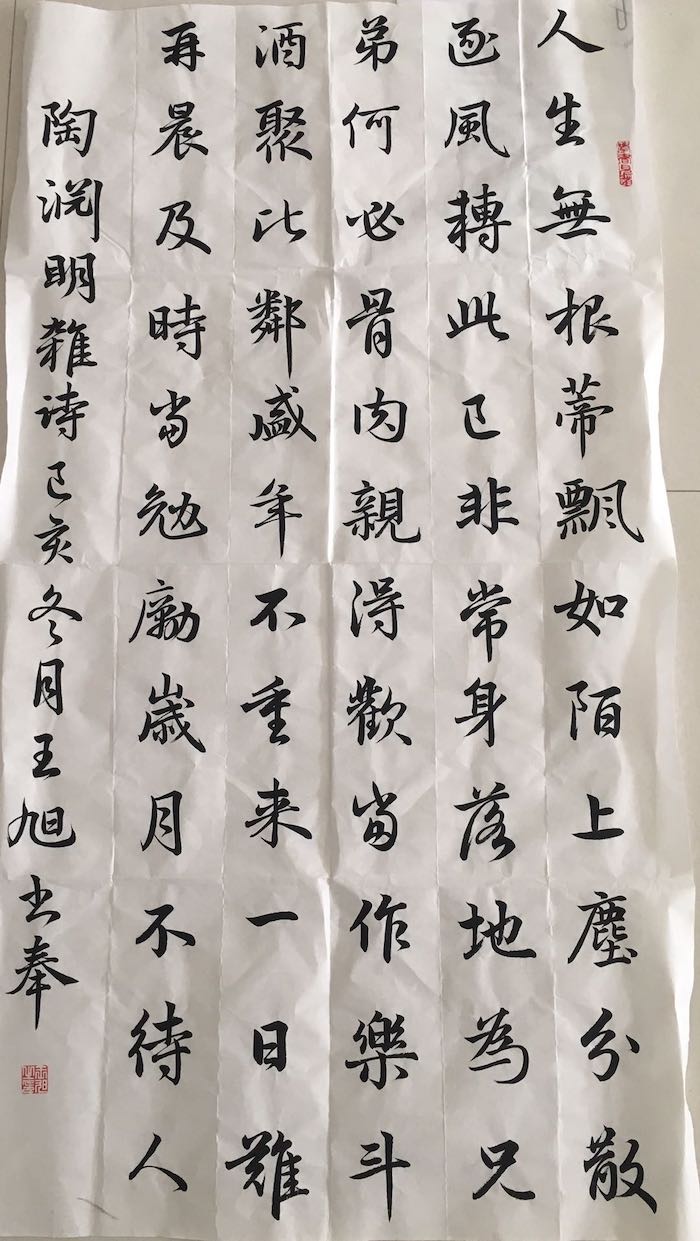 人生無根蒂飄如陌上塵分散
逐風轉此已非常身落地為兄
弟何必骨肉親得歡當作樂斗
酒聚比鄰盛年不重来一日難
再晨及時當勉勵歲月不待人
陶渊明雜诗己亥冬月王旭书奉